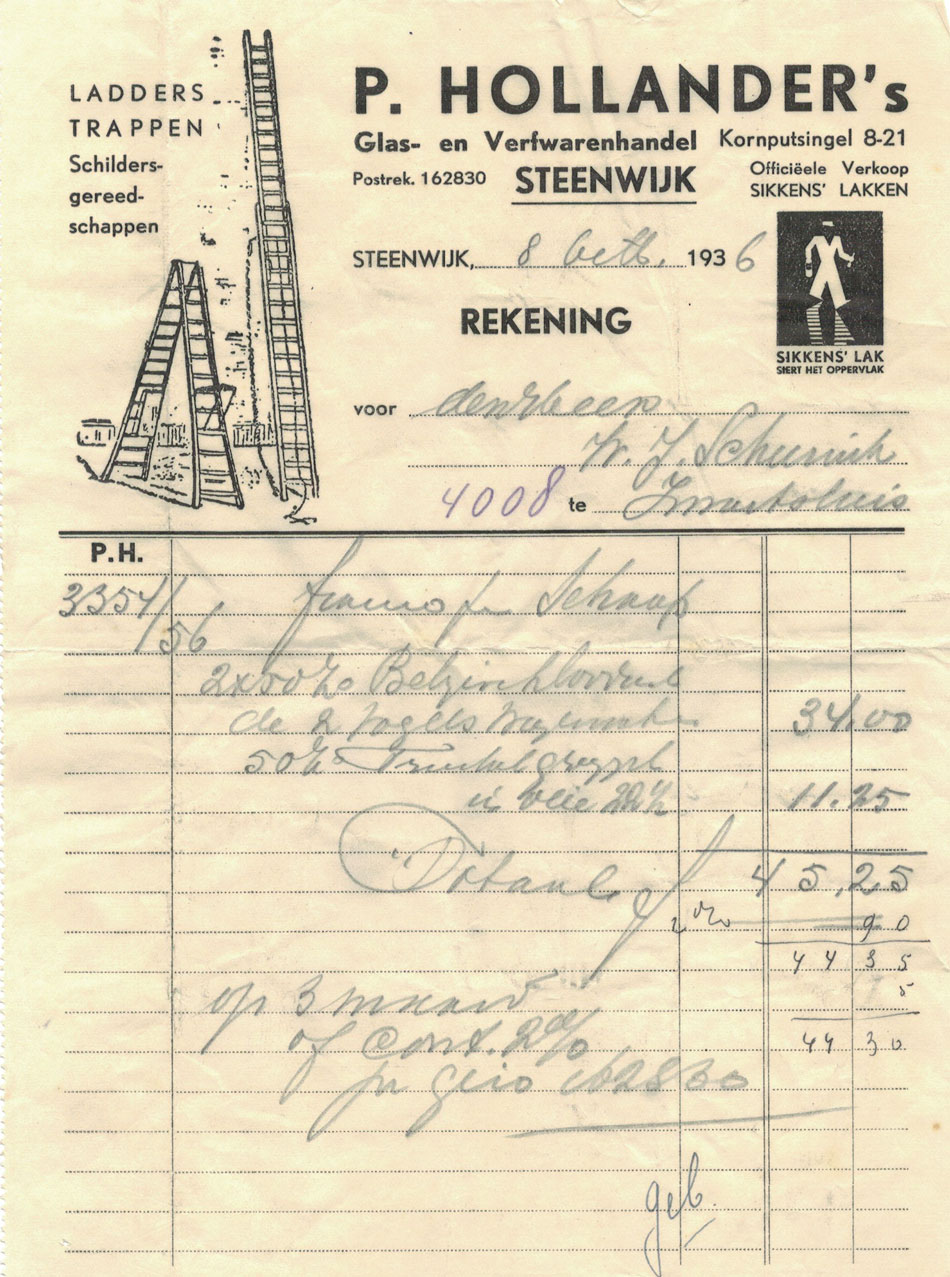 LADDERS
TRAPPEN
Schilders-
gereed-
schappen
P. HOLLANDER's
Glas- en Verfwarenhandel Kornputsingel 8-21
Postrek. 162830 STEENWIJK Officiëele Verkoop
SIKKENS' LAKKEN
STEENWIJK, 8 1936
REKENING
SIKKENS' LAK
SIERT HET OPPERVLAK
voor den Heer
W. J. Schuurink
4008 te Zwartsluis
P.H.
3354/56 franco per Schaap
2x50
de 2 Vogels 34.00
50
in 11.25
Totaal f 45,25
2% 90
44 35
5
44 30
op 3 maand
of Cont. 2%
per giro 162830
geb.